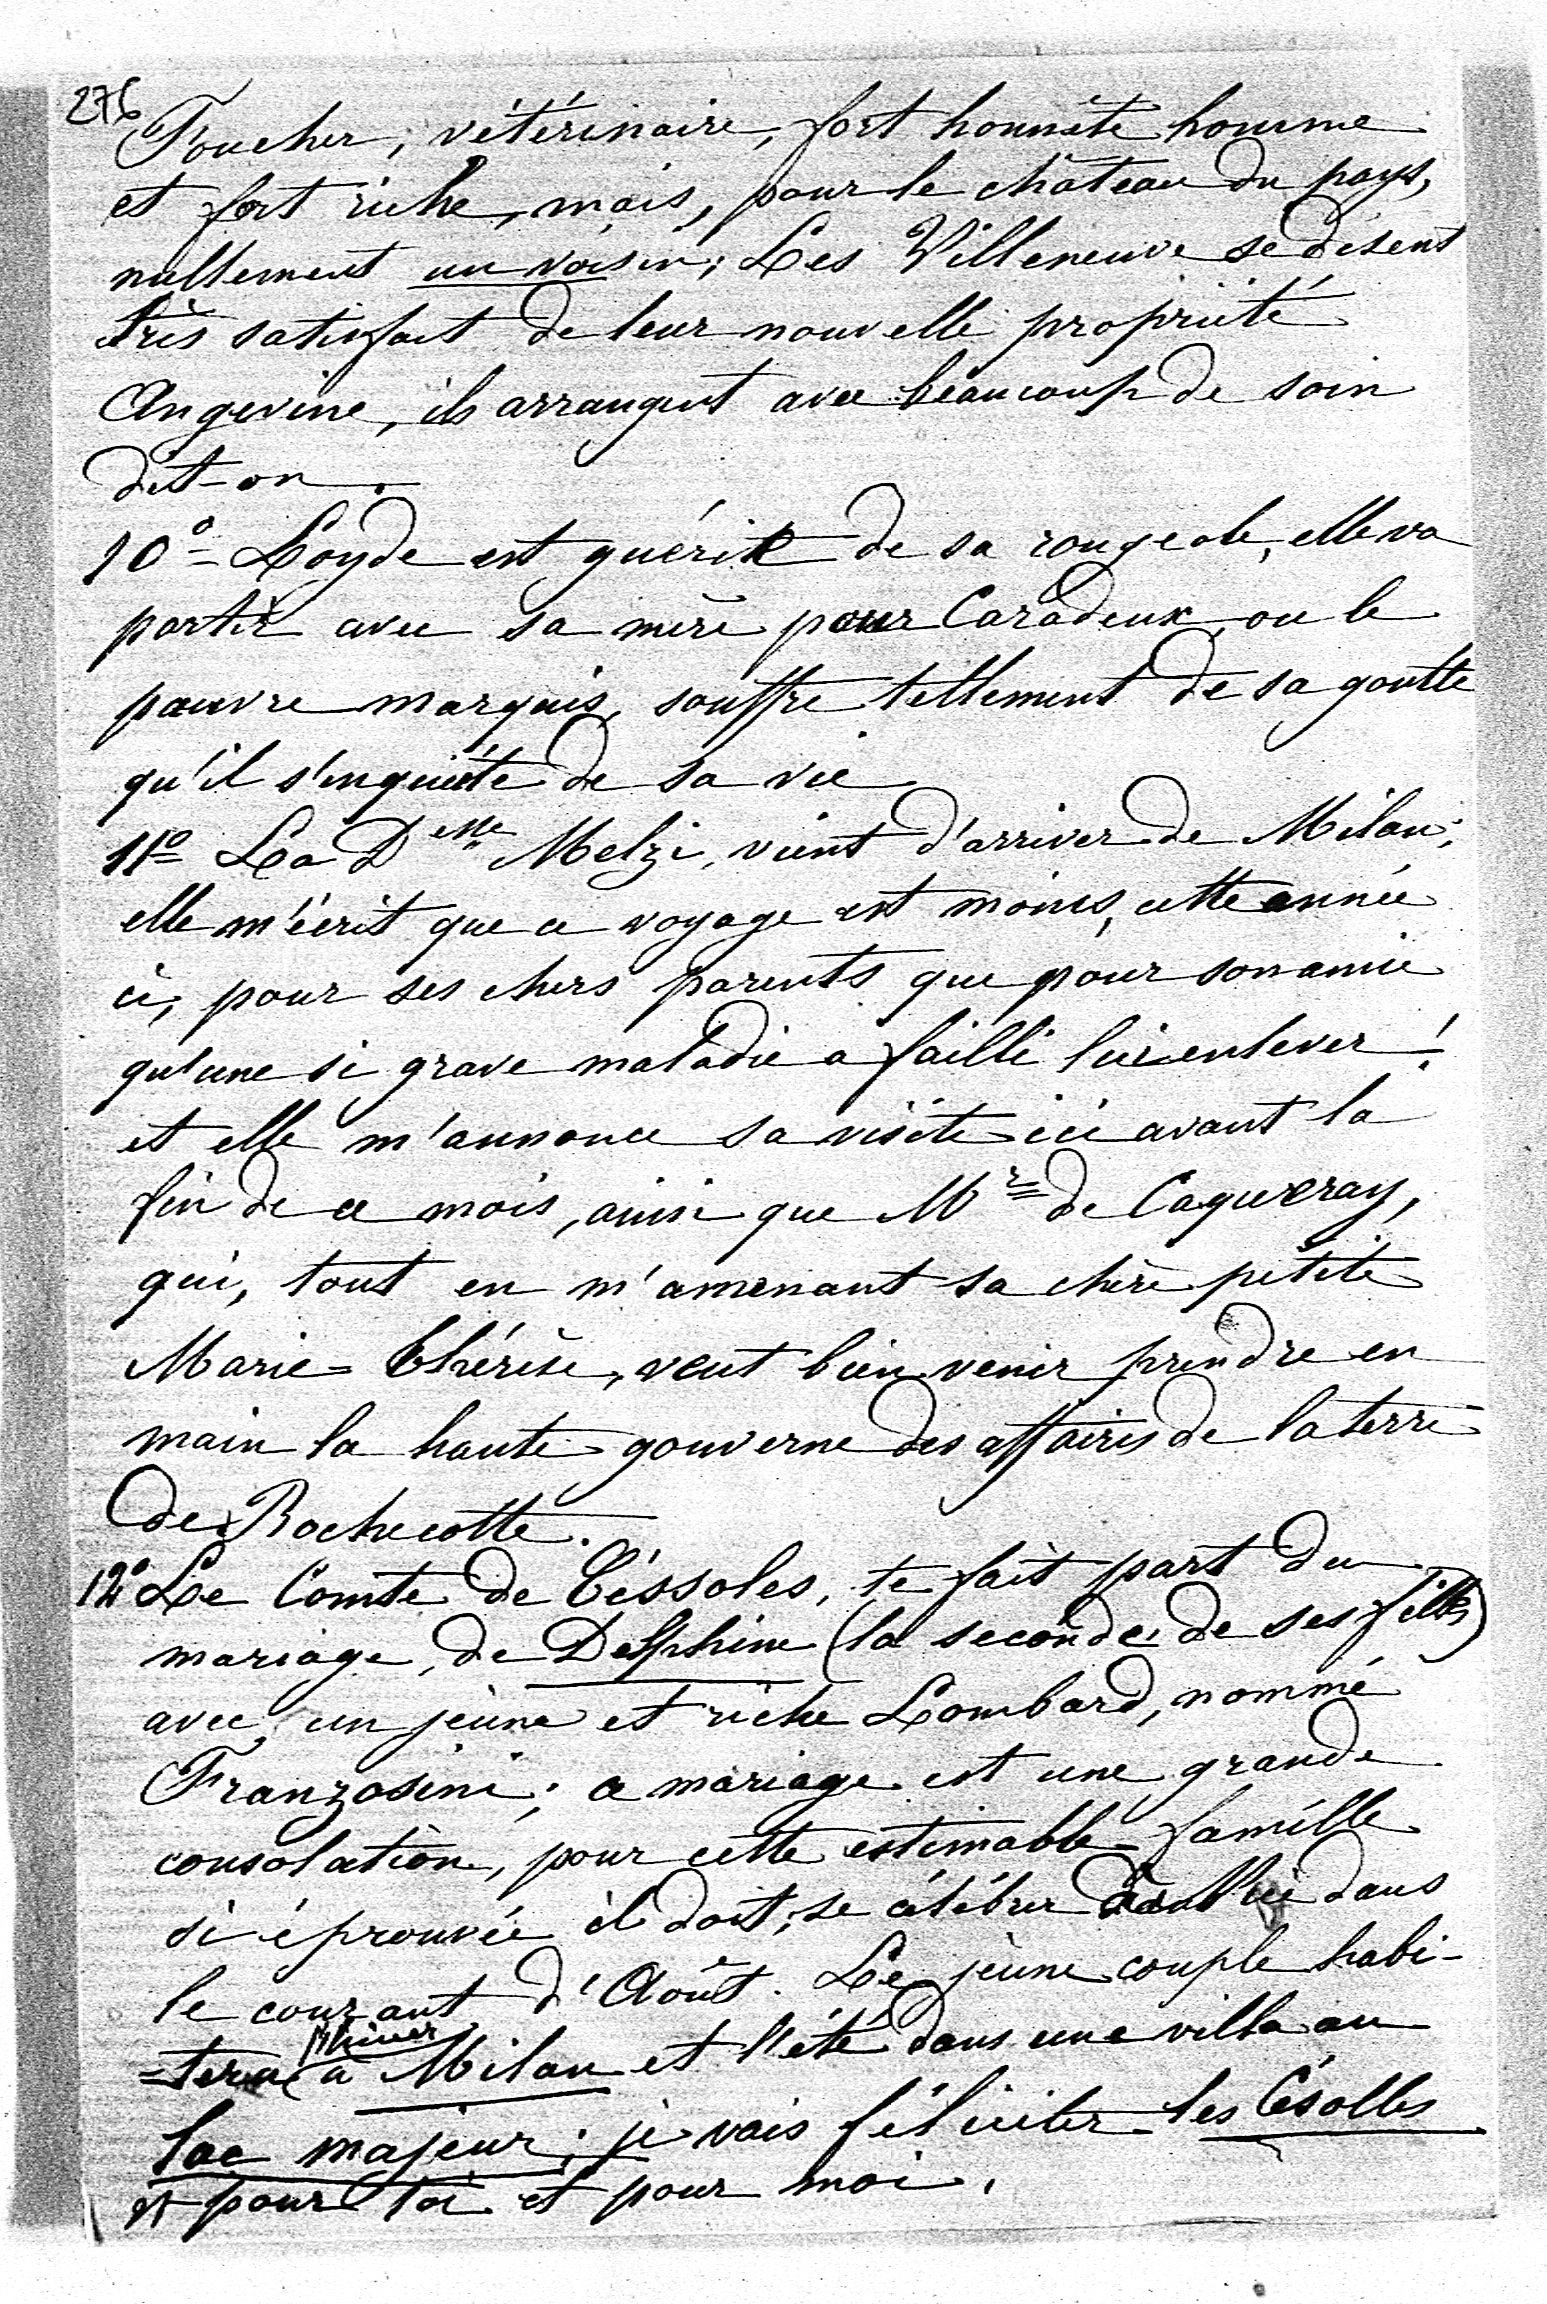 276
Foucher, vétérinaire, fort honnête homme
et fort riche, mais, pour le château du pays,
nullement un voisin; Les Villeneuve se disent
très satisfait de leur nouvelle propriété
Angevine, ils arrangent avec beaucoup de soin
dit-on.
10° = Loyde est guérite de sa rougeole, elle va
partir avec sa mère pour Caradeux, ou le
pauvre marquis, souffre tellement de sa goutte
qu'il s'inquiète de sa vie.
11° La D Melzi, vient d'arriver de Milan;
elle m'écrit que ce voyage est moins, cette année
ci, pour ses chers parents que pour son amie
qu'une si grave maladie a failli lui enlever!
et elle m'annonce sa visite ici avant la
fin de ce mois, ainsi que Mr de Caqueray,
qui, tout en m'amenant sa chère petite
Marie=Thérèse, veut bien venir prendre en
main la haute gouverne des affaires de la terre
de Rochecotte.
12° Le Comte de Céssoles, te fait part du
mariage, de Delphine (la seconde de ses filles)
avec un jeune et riche Lombard, nommé
Franzosini; ce mariage est une grande
consolation, pour cette estimable famille
si éprouvée il doit, se célébrer dans
le courant d'Août. Le jeune couple habi-
=tera l'hiver à Milan et l'été dans une villa au
lac majeur; je vais féliciter les Césolles
et pour toi et pour moi.